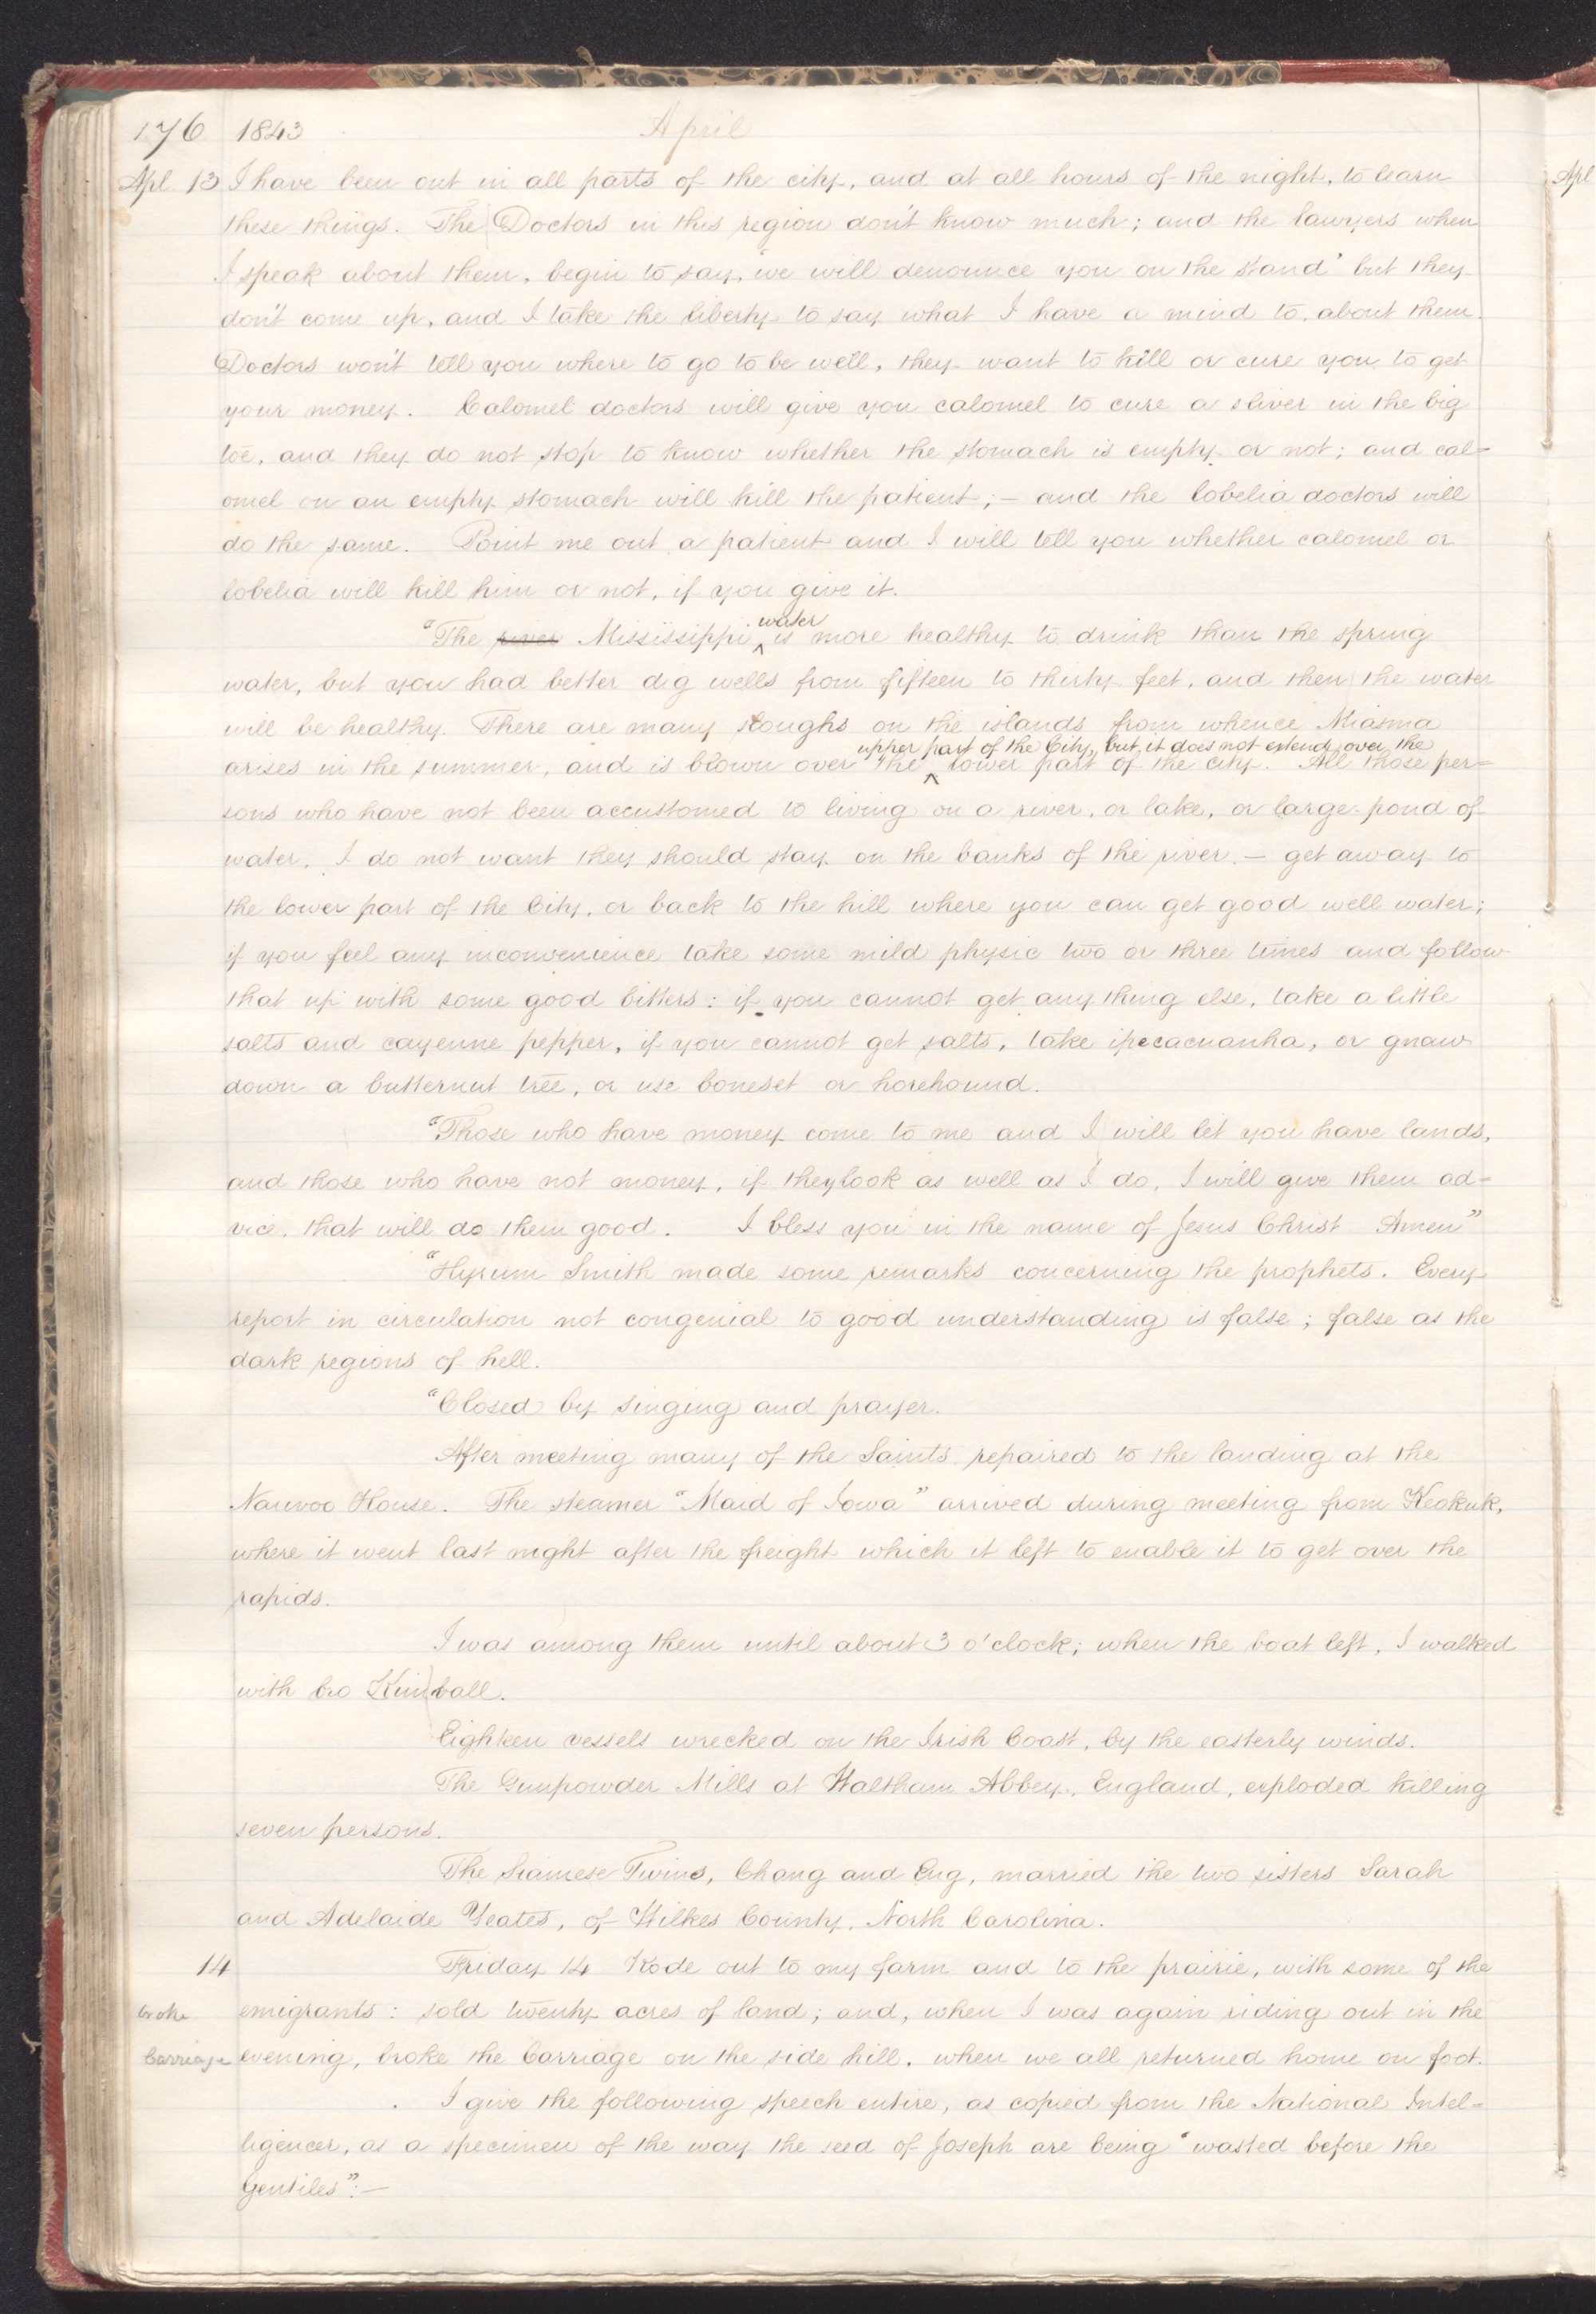 176 1843 April
Apl. 13 I have been out in all parts of the city, and at all hours of the night, to learn
these things. The Doctors in this region don't know much; and the lawyers when
I speak about them, begin to say, "we will denounce you on the stand" but they
don't come up, and I take the liberty to say what I have a mind to, about them.
Doctors won't tell you where to go to be well, they want to kill or cure you to get
your money. Calomel doctors will give you calomel to cure a sliver in the big
toe, and they do not stop to know whether the stomach is empty or not; and cal=
omel on an empty stomach will kill the patient;— and the lobelia doctors will
do the same. Point me out a patient and I will tell you whether calomel or
lobelia will kill him or not, if you give it.
water
"The river Mississippi ^ is more healthy to drink than the spring
water, but you had better dig wells from fifteen to thirty feet, and then the water
will be healthy. There are many sloughs on the islands from whence Miasma
upper part of the City, but it does not extend over the
arises in the summer, and is blown over the ^ lower part of the city. All those per=
sons who have not been accustomed to living on a river, or lake, or large pond of
water, I do not want they should stay on the banks of the river,— get away to
the lower part of the City, or back to the hill where you can get good well water;
if you feel any inconvenience take some mild physic two or three times and follow
that up with some good bitters: if you cannot get any thing else, take a little
salts and cayenne pepper, if you cannot get salts, take ipecacuanha, or gnaw
down a butternut tree, or use boneset or horehound.
"Those who have money come to me and I will let you have lands,
and those who have not money, if they look as well as I do, I will give them ad=
vice, that will do them good. I bless you in the name of Jesus Christ Amen"
"Hyrum Smith made some remarks concerning the prophets. Every
report in circulation not congenial to good understanding is false; false as the
dark regions of hell.
"Closed by singing and prayer.
After meeting many of the Saints repaired to the landing at the
Nauvoo House. The steamer "Maid of Iowa" arrived during meeting from Keokuk,
where it went last night after the freight which it left to enable it to get over the
rapids.
I was among them until about 3 o'clock; when the boat left, I walked
with bro Kimball.
Eighteen vessels wrecked on the Irish Coast, by the easterly winds.
The Gunpowder Mills at Waltham Abbey, England, exploded killing
seven persons.
The Siamese Twins, Chang and Eng, married the two sisters Sarah
and Adelaide Yeates, of Wilkes County, North Carolina.
14 Friday 14 Rode out to my farm and to the prairie, with some of the
broke emigrants: sold twenty acres of land; and, when I was again riding out in the
Carriage evening, broke the Carriage on the side hill, when we all returned home on foot.
I give the following speech entire, as copied from the National Intel=
ligencer, as a specimen of the way the seed of Joseph are being "wasted before the
Gentiles":—
Apl